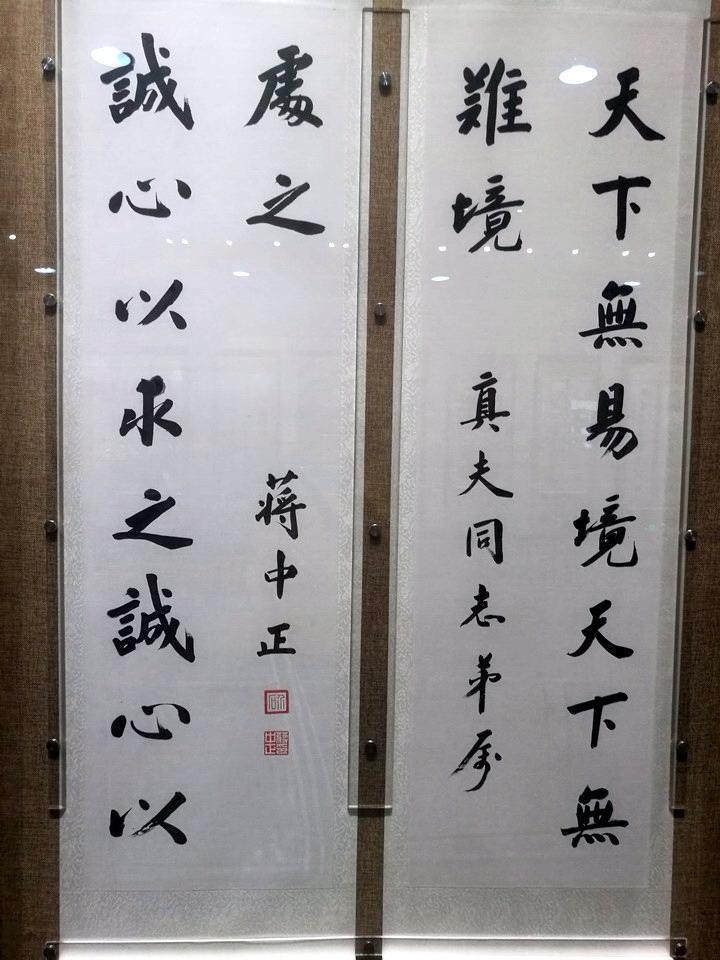 天下無易境天下無
難境
真夫同志弟属
誠心以求之誠心以
處之
蔣中正